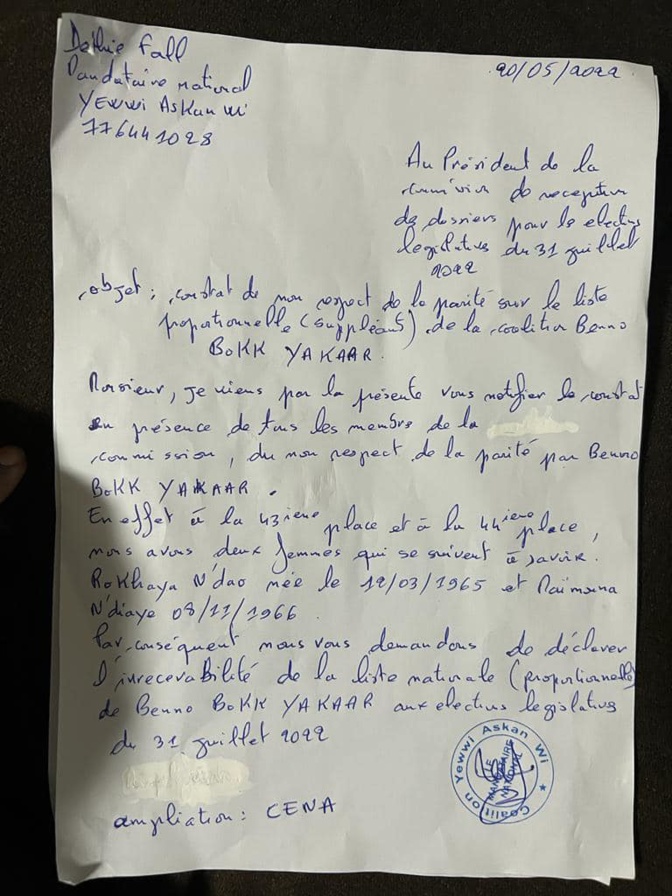 Dethie Fall
Mandataire national
YEWWI ASKan Wi
776441028
20/05/2022
Au Président de la
commission de reception
de dossiers pour le elections
legislatives du 31 juillet
2022
objet : constat de non respect de la parité sur la liste
proportionnelle (suppléant) de la coalition Benno
BOKK YAKAAR.
Monsieur, je viens par la présente vous notifier le constat
en présence de tous les membre de la
commission, du non respect de la parité par Benno
BOKK YAKAAR.
En effet à la 43ieme place et à la 44ieme place,
nous avons deux femmes qui se suivent à savoir.
Rokhaya N'dao née le 12/03/1965 et Maïmouna
N'diaye 08/11/1966.
Par conséquent nous vous demandons de déclarer
l'irrecevabilité de la liste nationale (proportionnelle)
de Benno BOKK YAKAAR aux elections legislatives
du 31 juillet 2022
ampliation : CENA
Coalition Yewwi Askan Wi
LE
MANDATAIRE
NATIONAL